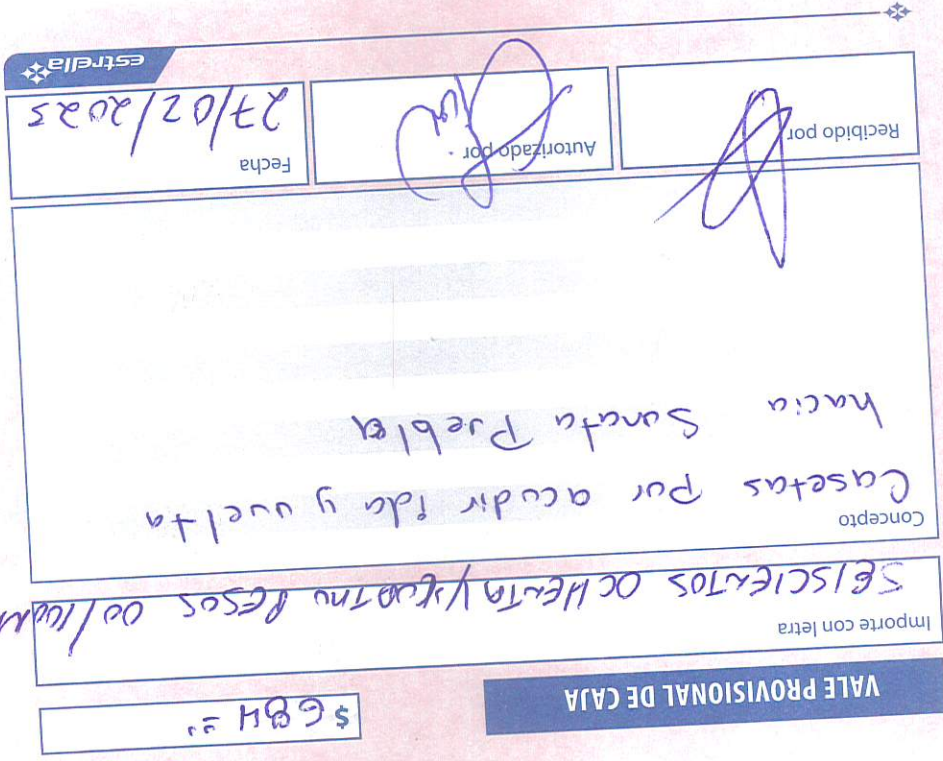 VALE PROVISIONAL DE CAJA
$ 684 =
Importe con letra
SEISCIENTOS OCHENTA Y CUATRO PESOS 00/100 M
Concepto
Casetas por acudir ida y vuelta
hacia Sanata Puebla
Recibido por
Autorizado por
Fecha
27/02/2025
estrella